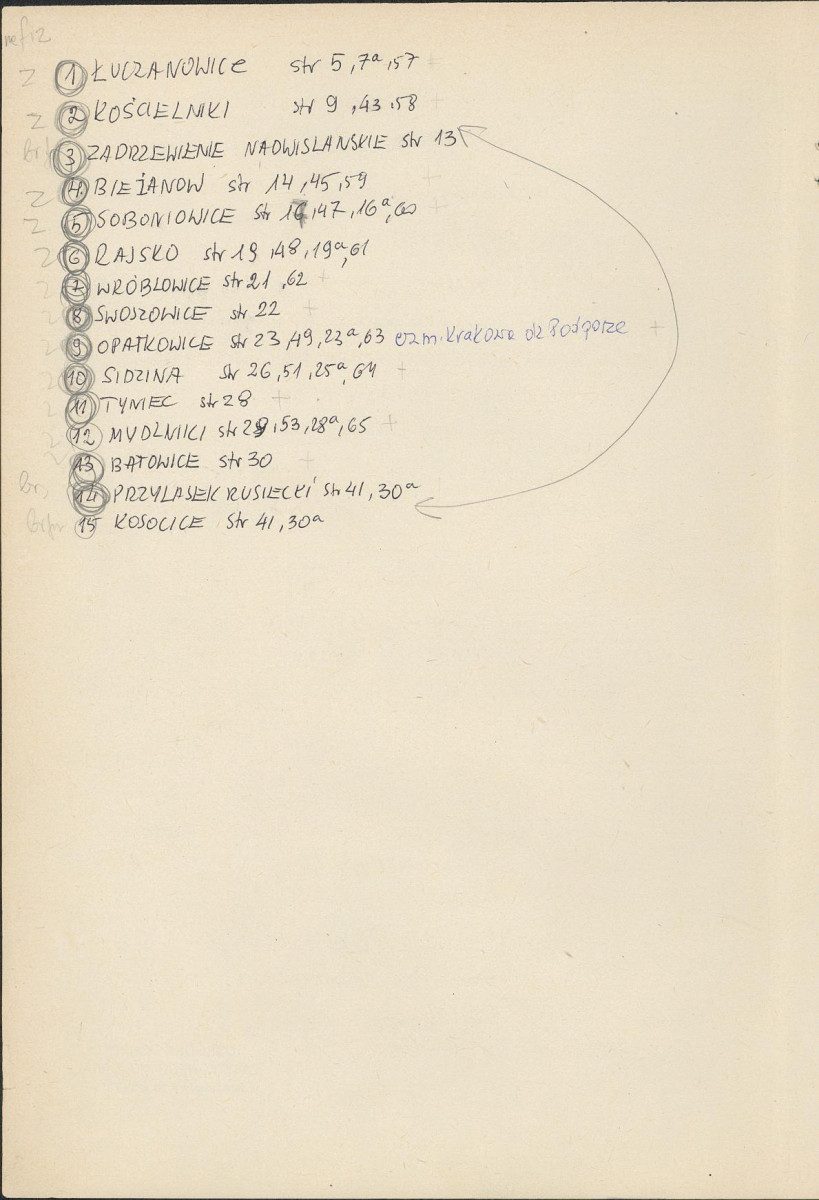 Z 1 ŁUCZANOWICE str 5, 7a, 57
Z 2 KOŚCIELNIKI str 9, 43, 58 +
3 ZADRZEWIENIE NADWISLANSKIE str 13
Z 4. BIEŻANOW str 14, 45, 59 +
Z 5 SOBONIOWICE str 16, 47, 16a, 60 +
Z 6 RAJSKO str 19, 48, 19a, 61
Z 7 WRÓBLOWICE str 21, 62 +
Z 8 SWOSZOWICE str 22 +
Z 9 OPATKOWICE str 23, 49, 23a, 63 czm. Krakowa dz Podgórze +
Z 10 SIDZINA str 26, 51, 25a, 64 +
Z 11 TYNIEC str 28 +
Z 12 MYDLNIKI str 29, 53, 28a, 65 +
Z 13 BATOWICE str 30 +
14 PRZYLASEK RUSIECKI str 41, 30a
15 KOSOCICE str 41, 30a